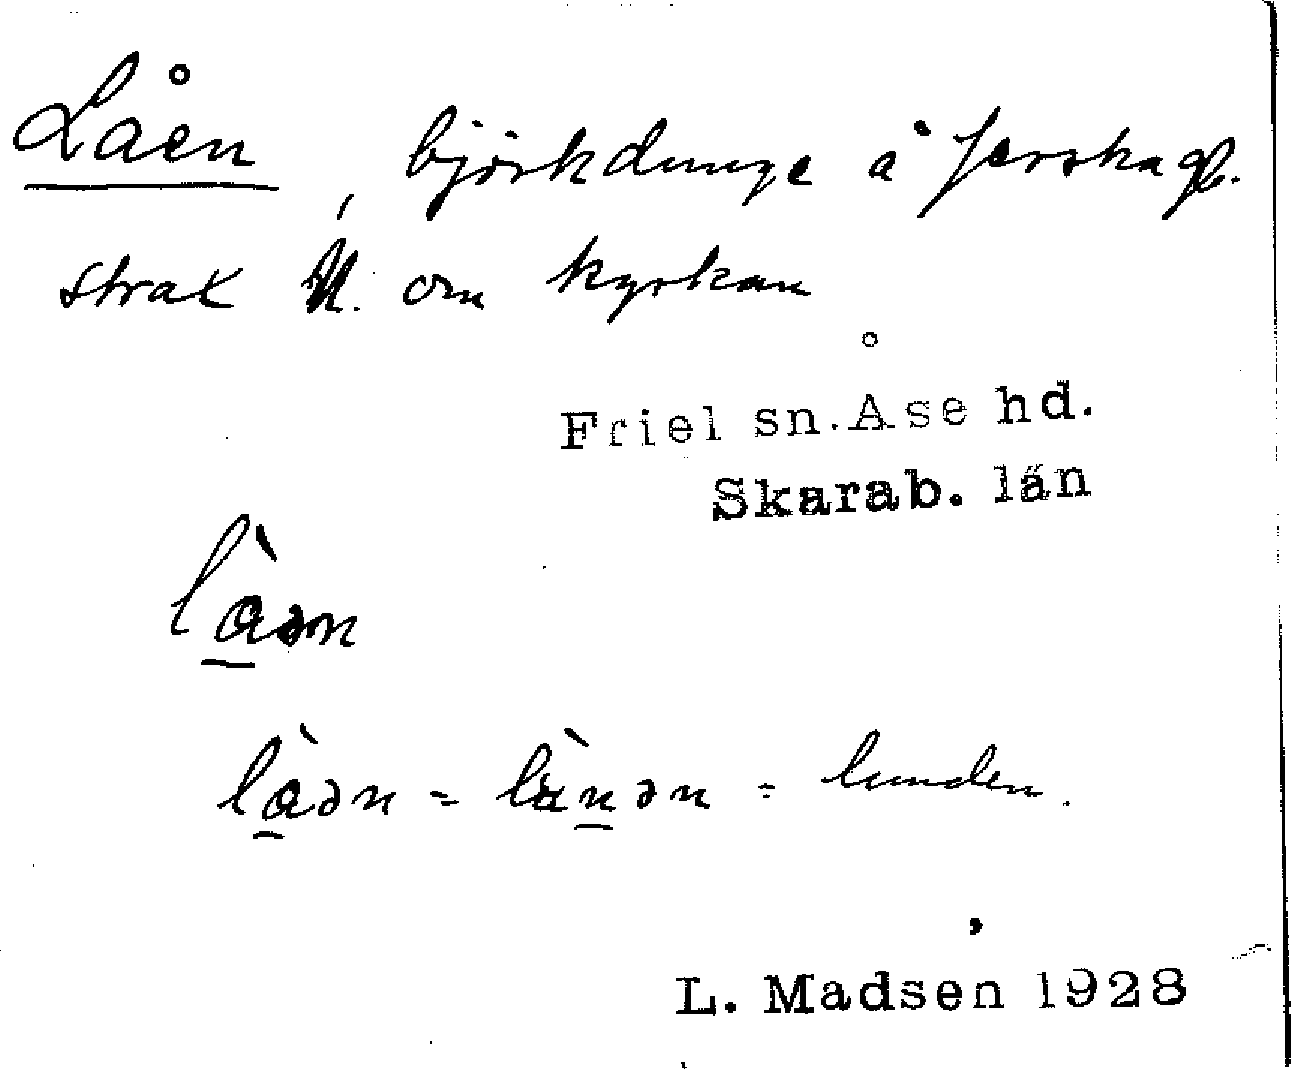 Låen, björkdunge å Jerska gl.
strax N. om kyrkan
Friel sn. Åse hd.
Skarab. län
lå̀ən
lå̀ən = lànən = lunden.
L. Madsen 1928